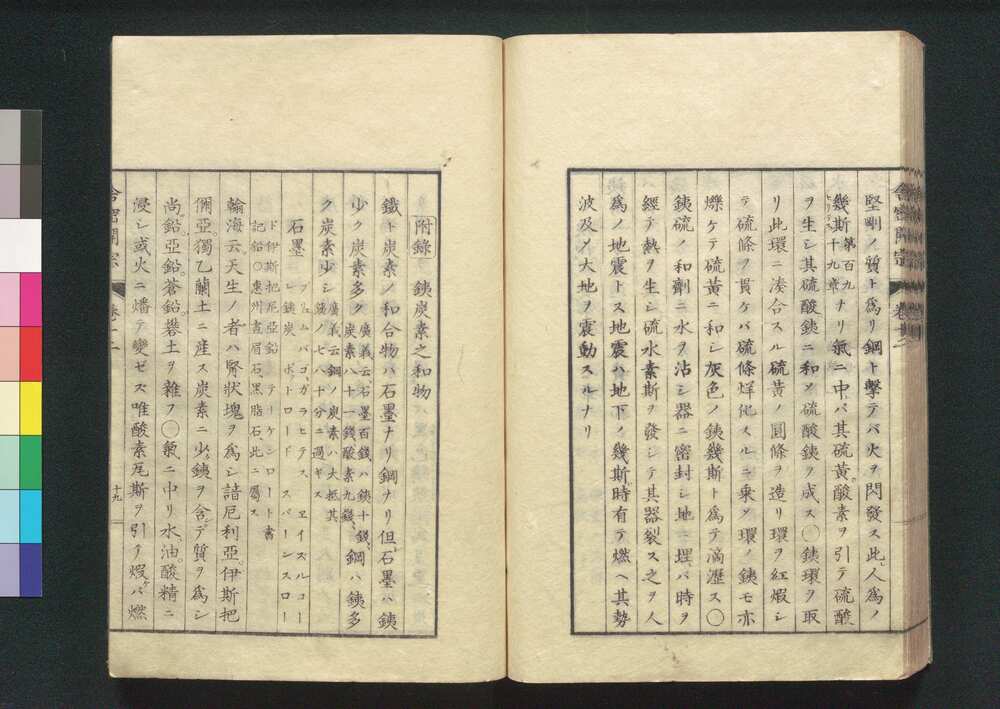 堅剛ノ質ト為リ鋼ト撃テバ火ヲ閃發ス此、人為ノ
幾斯第百九十九章ナリ氣ニ中レバ其硫黄、酸素ヲ引テ硫酸
ヲ生シ其硫酸銕ニ和メ硫酸銕ヲ成ス〇銕環ヲ取
リ此環ニ湊合スル硫黄ノ圓條ヲ造リ環ヲ紅煆シ
テ硫條ヲ貫ケバ硫條烊化スルニ乗メ環ノ銕モ亦
爍ケテ硫黄ニ和シ灰色ノ銕幾斯ト為テ滴瀝ス〇
銕硫ノ和劑ニ水ヲ沾シ器ニ密封シ地ニ埋レバ時ヲ
經テ熱ヲ生シ硫水素斯ヲ發シテ其器裂ス之ヲ人
為ノ地震トス地震ハ地下ノ幾斯時有テ燃ヘ其勢
波及メ大地ヲ震動スルナリ
舎密開宗 巻十二
附錄 銕炭素之和物
鐵ト炭素ノ和合物ハ石墨ナリ鋼ナリ但石墨ハ銕
少ク炭素多ク廣義云石墨百錢ハ銕十錢、炭素八十一錢酸素九錢、鋼ハ銕多
ク炭素少シ廣義云鋼ノ炭素ハ大抵其銕ノ七八十分ニ過ギス
石墨
記鉛〇惠州畫眉石黒脂石、此ニ屬ス
翰海云天生ノ者ハ腎狀塊ヲ為シ諳厄利亞伊斯把
儞亞獨乙蘭土ニ産ス炭素ニ少銕ヲ含テ質ヲ為シ
尚鉛亞鉛蒼鉛礬土ヲ雜フ〇氣ニ中リ水、油酸精ニ
浸シ或火ニ燔テ變ゼス唯酸素瓦斯ヲ引テ煆ケバ燃
十九